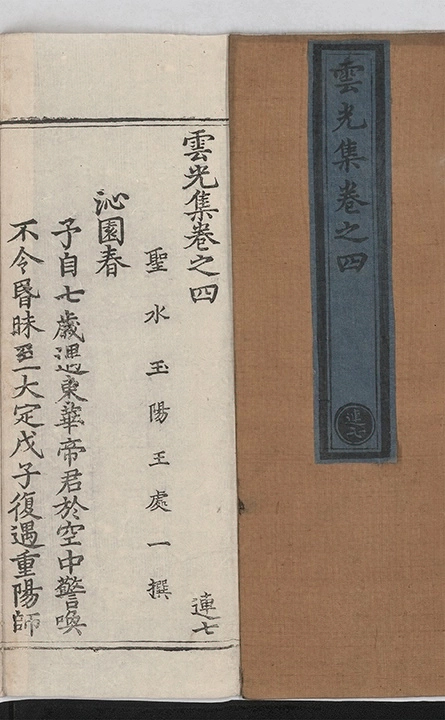 雲光集卷之四
連七
雲光集卷之四
連七
聖水玉陽王處一撰
沁園春
予自七歲遇東華帝君於空中警喚
不令昏昧至大定戊子復遇重陽師